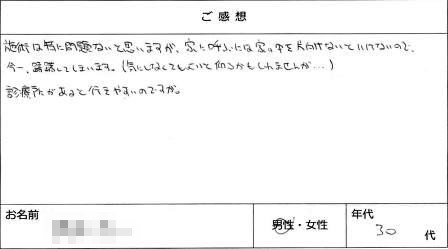 ご感想
施術は特に問題ないと思いますが、家に呼ぶには家の中を片付けないといけないので、
今一、躊躇してしまいます。(気にしなくてもよいと仰るかもしれませんが…)
診療所があると行きやすいのですが。
お名前
男性・女性
年代
30代